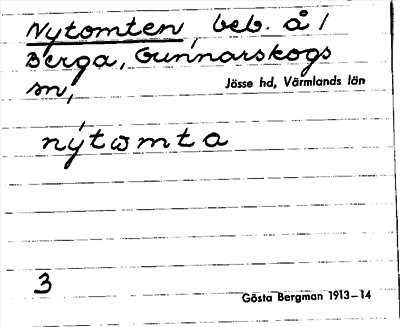 Nytomten, beb. å 1
Berga, Gunnarskogs
sn,
Jösse hd, Värmlands län
nýtωmta
3
Gösta Bergman 1913–14